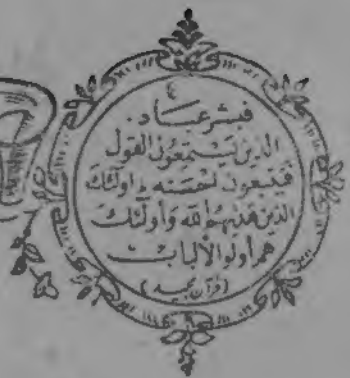 فبشر عباد.
الذين يستمعون القول
فيتبعون احسنه، اولئك
الذين هدىهم الله واولئك
هم اولوا الالباب
(قرآن مجيد)